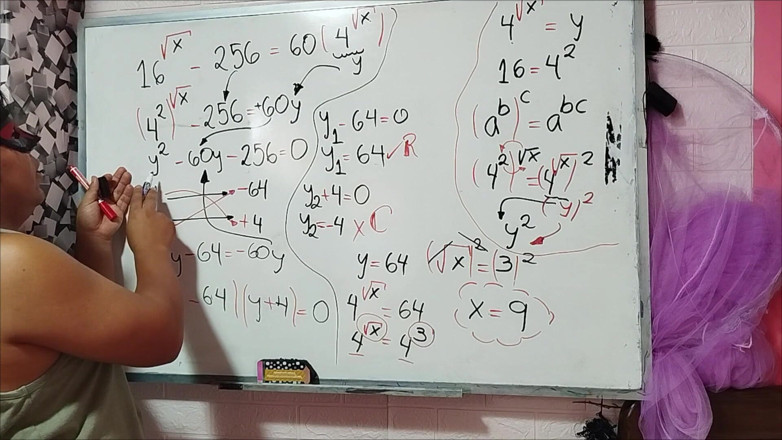 16^√x - 256 = 60(4^√x)
y
(4²)^√x - 256 = +60y
y² - 60y - 256 = 0
-64
+4
y - 64 = -60y
-64)(y+4) = 0
y₁ - 64 = 0
y₁ = 64 ✓R
y₂ + 4 = 0
y₂ = -4 x C
y = 64
4^√x = 64
4^√x = 4^3
4^√x = y
16 = 4²
(a^b)^c = a^bc
(4²)^√x = (4^√x)²
y² (y)²
(√x)² = (3)²
x = 9